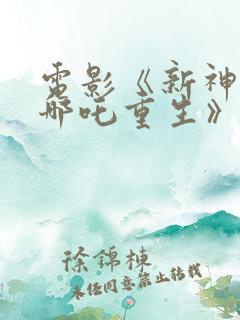 電影《新神
哪吒重生》
徐錦棟
未經同意禁止轉載